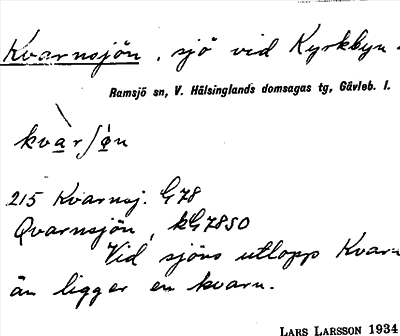 Kvarnsjön, sjö vid Kyrkbyn.
Ramsjö sn, V. Hälsinglands domsagas tg, Gävleb. l.
kvarʃøn
215 Kvarnsj. G78
Qvarnsjön, kG7850
Vid sjöns utlopp Kvarn
ån ligger en kvarn.
LARS LARSSON 1934